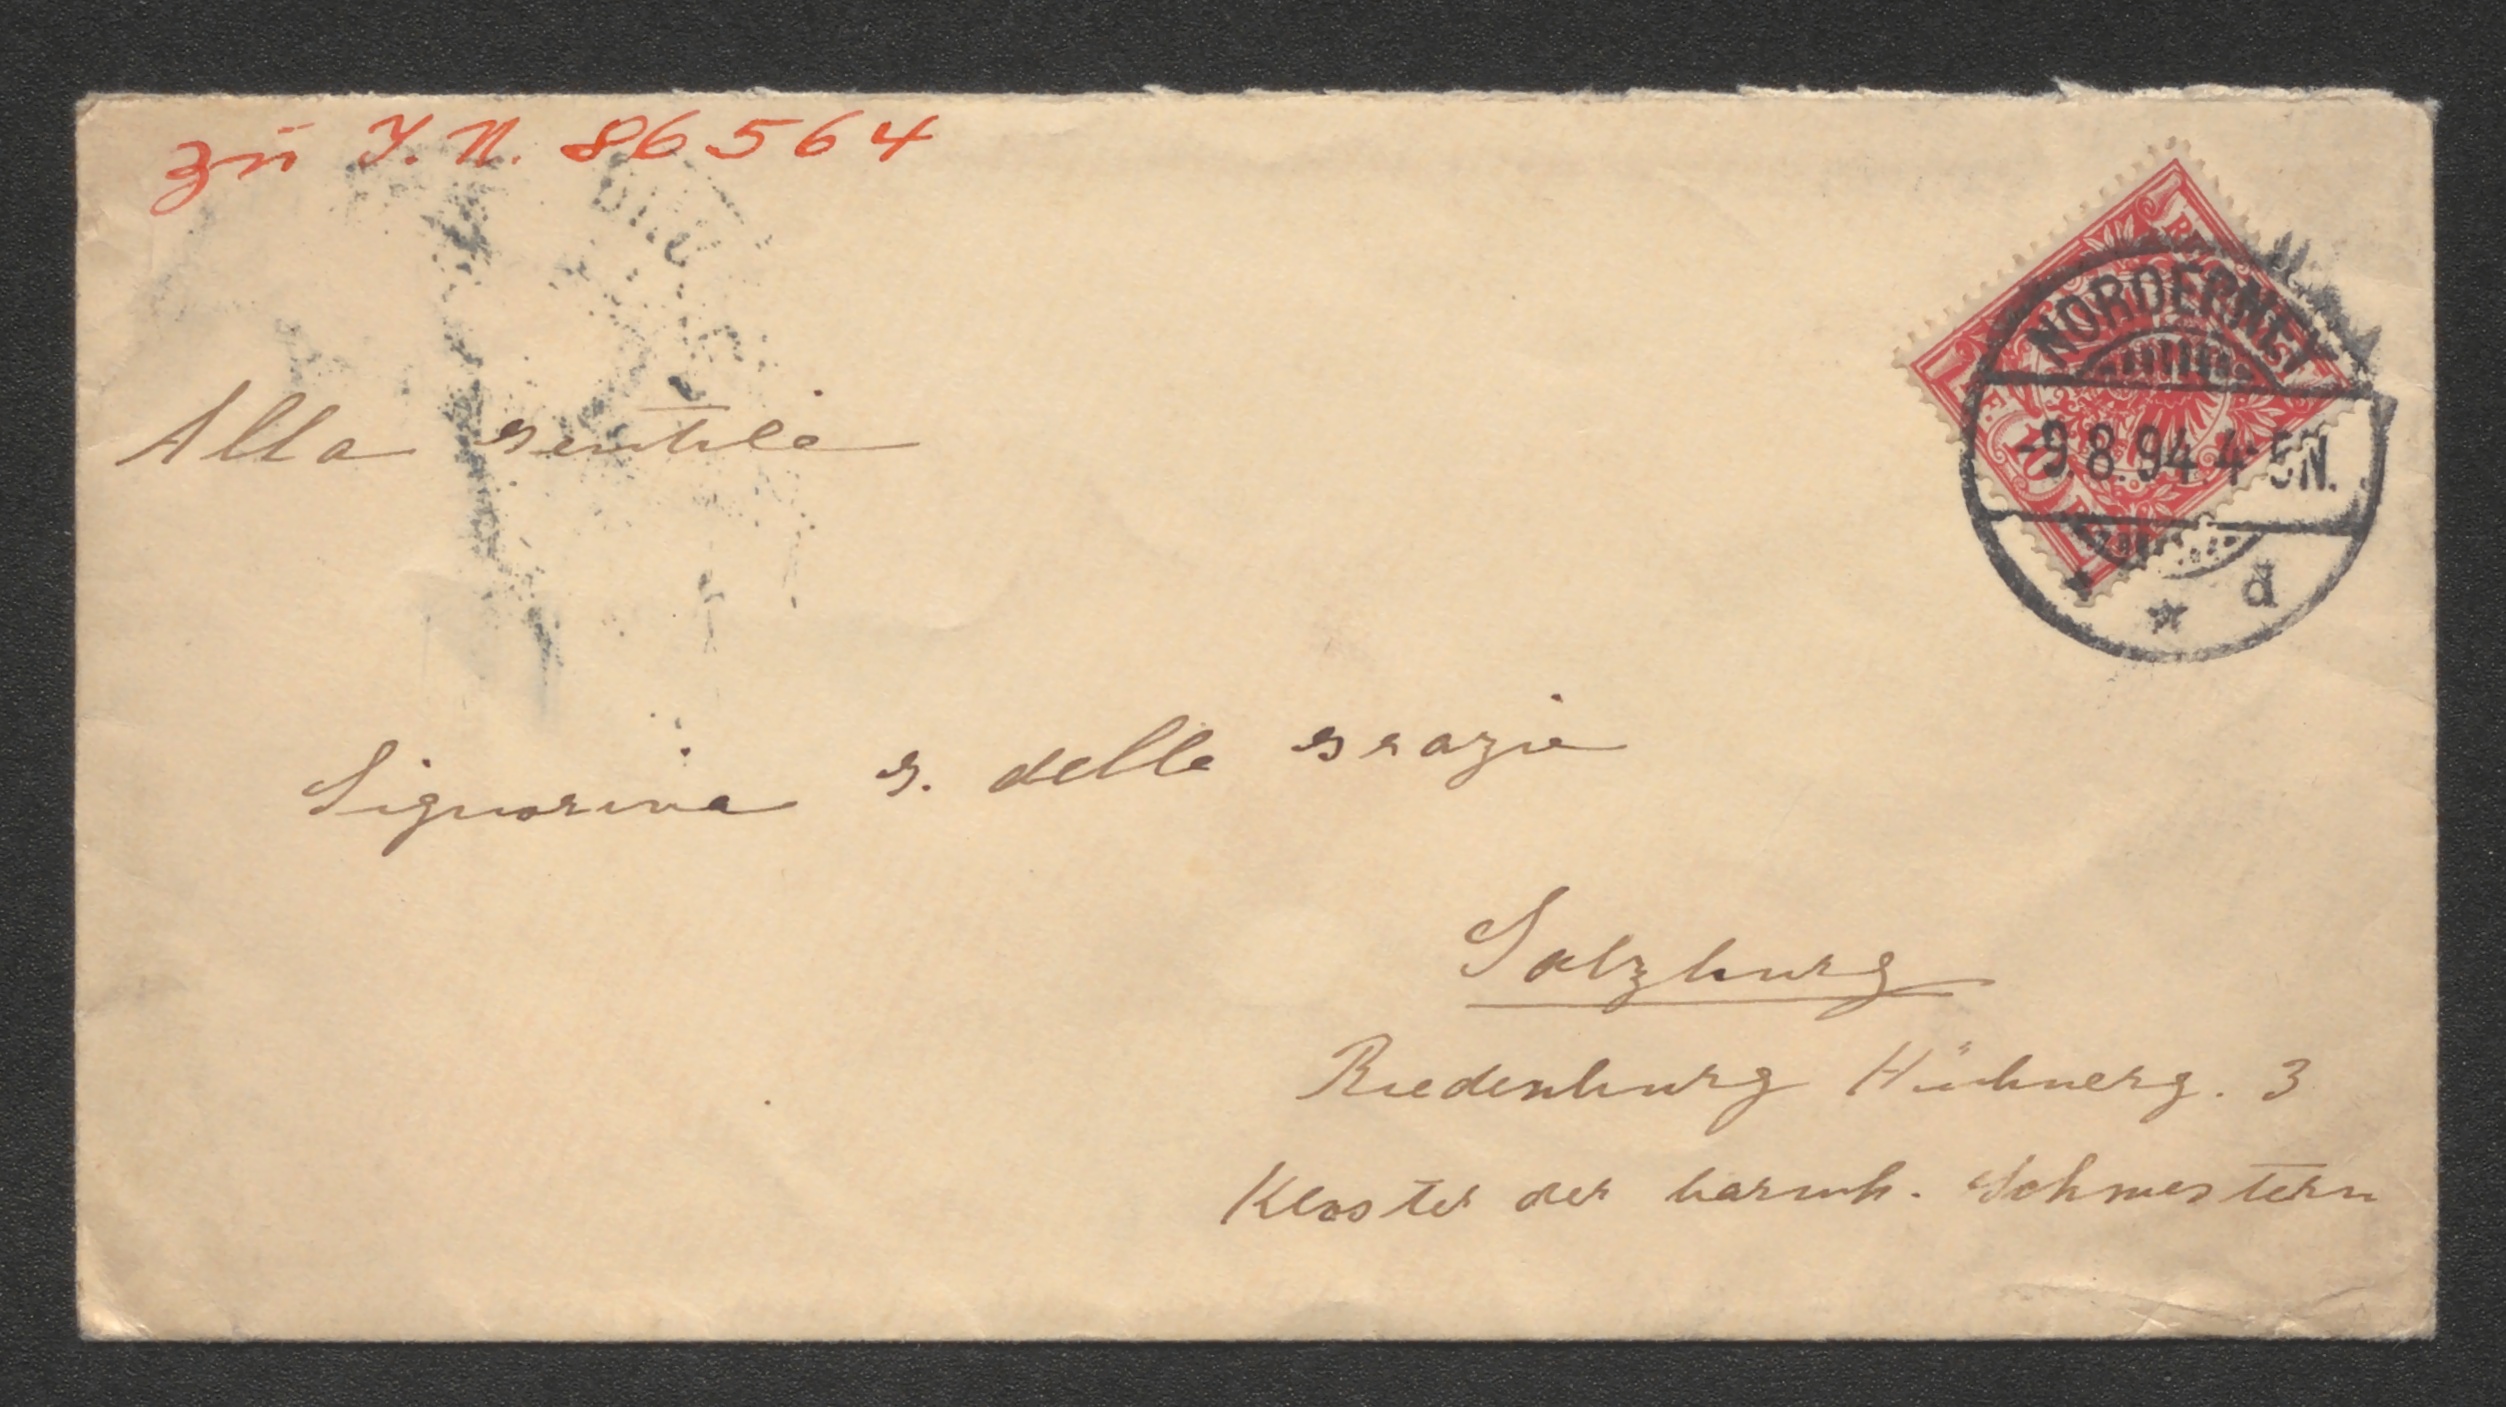 zu I. N. 86564
NORDERNEY
-9.8.94. 4-5N.
* d
Alla gentile
Signorina g. delle grazie
Salzburg
Riedenburg Hübnerg. 3
Kloster der barmh. Schwestern